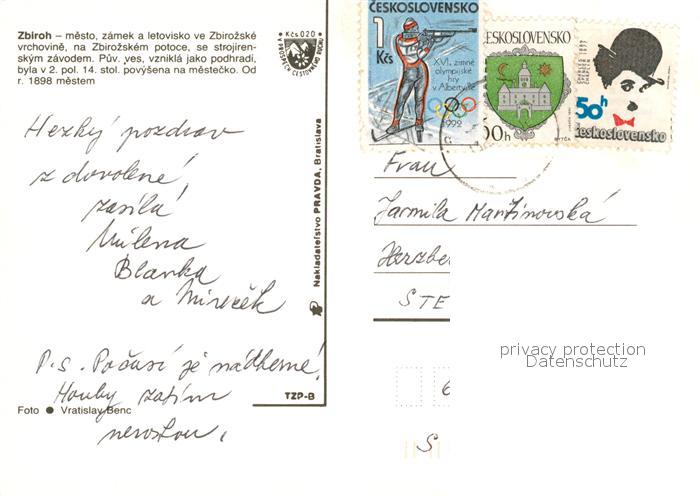 Zbiroh – město, zámek a letovisko ve Zbirožské
vrchovině, na Zbirožském potoce, se strojíren-
ským závodem. Pův. ves, vzniklá jako podhradí,
byla v 2. pol. 14. stol. povýšena na městečko. Od
r. 1898 městem
Kčs 0,20
VE PROSPĚCH CESTOVNÍHO RUCHU
ČESKOSLOVENSKO
1
Kčs
XVI. zimné
olympijské
hry
v Albertville
1992
ČESKOSLOVENSKO
00h
BYTČA
50h
Československo
Hezký pozdrav
z dovolené
zasílá
Milena
Blanka
a Mireček
P.S. Počasí je nádherné!
Houby zatím
nerostou,
Nakladatelstvo PRAVDA, Bratislava
TZP-B
Foto ● Vratislav Benc
Frau
Jarmila Martinovská
Herzbe
STE
6
S
privacy protection
Datenschutz